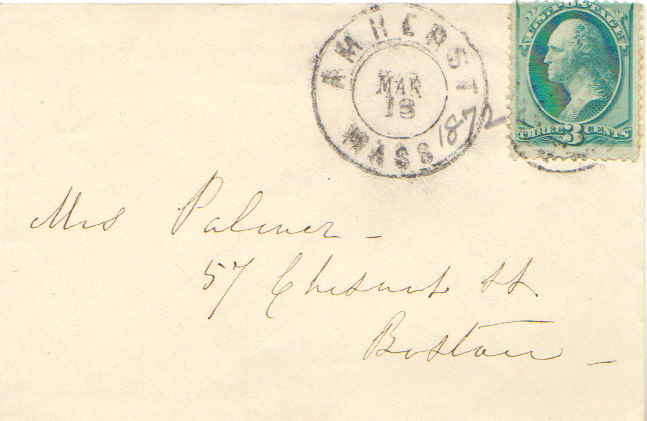 AMHERST
MAR
18
MASS
1872
U.S. POSTAGE
THREE 3 CENTS
Mrs Palmer -
57 Chesnut St.
Boston -